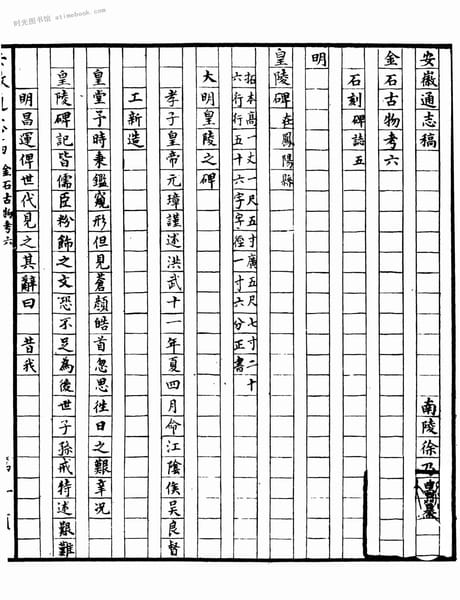 时光图书馆 atimebook.com
安徽通志稿
金石古物考六　南陵徐乃昌纂
石刻碑誌五
明
皇陵碑 在鳳陽縣
拓本高一丈一尺五寸廣五尺七寸二十
六行行五十六字字徑一寸六分正書
大明皇陵之碑
孝子皇帝元璋謹述洪武十一年夏四月命江陰侯吳良督
工新造
皇堂予時秉鑑窺形但見蒼顏皓首忽思徃日之艱辛況
皇陵碑記皆儒臣粉飾之文恐不足為後世子孫戒特述艱難
明昌運俾世代見之其辭曰　昔我
金石古物考六
第一頁